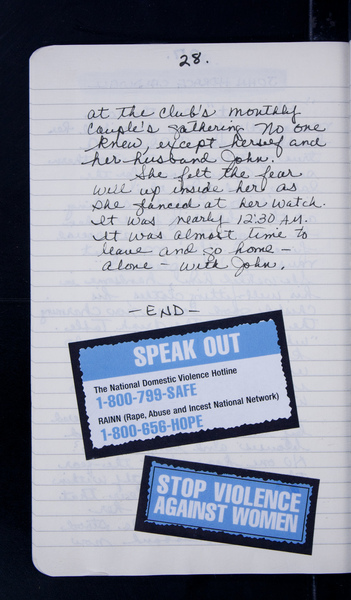 28.
at the club's monthly
couple's gathering. No one
knew, except herself and
her husband John.
She felt the fear
well up inside her as
she glanced at her watch.
It was nearly 12:30 A.M.
It was almost time to
leave and go home -
alone - with John.
- END -
SPEAK OUT
The National Domestic Violence Hotline
1-800-799-SAFE
RAINN (Rape, Abuse and Incest National Network)
1-800-656-HOPE
STOP VIOLENCE
AGAINST WOMEN